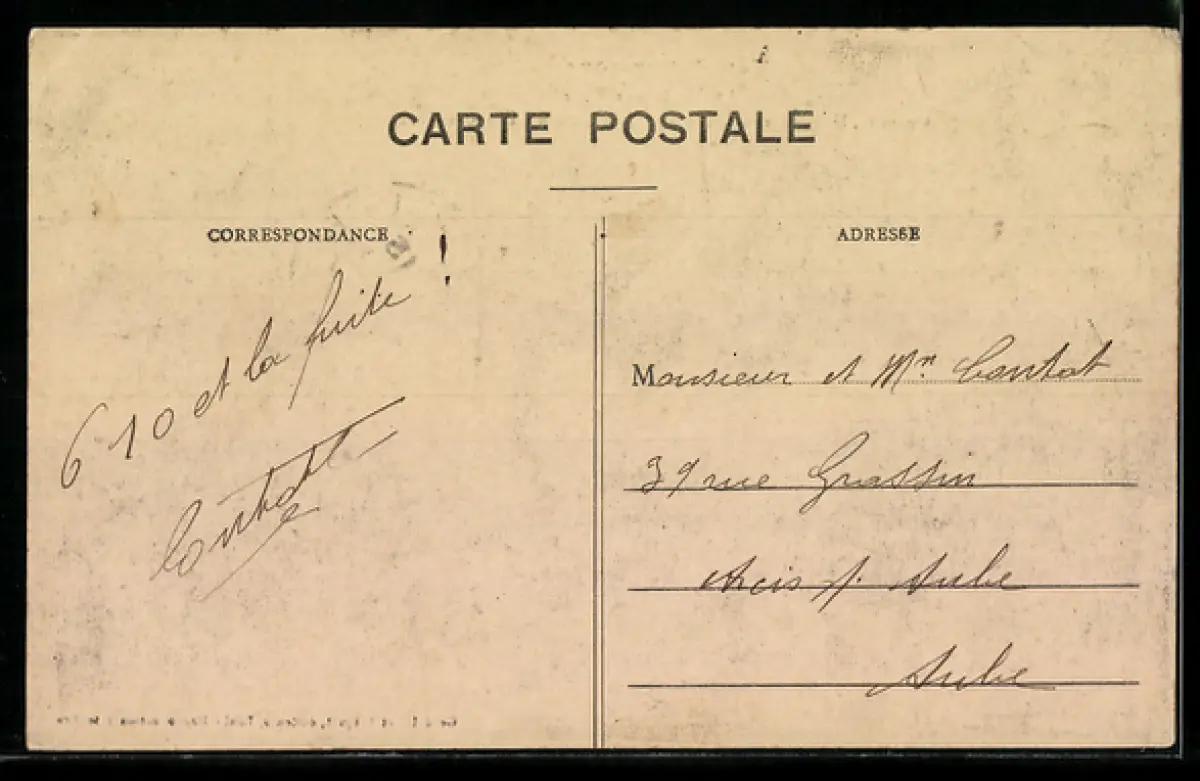 CARTE POSTALE
CORRESPONDANCE
ADRESSE
610 et la fuite !
Contat
Monsieur et Mme Contat
39 rue Grassin
Arcis s/. Aube
Aube